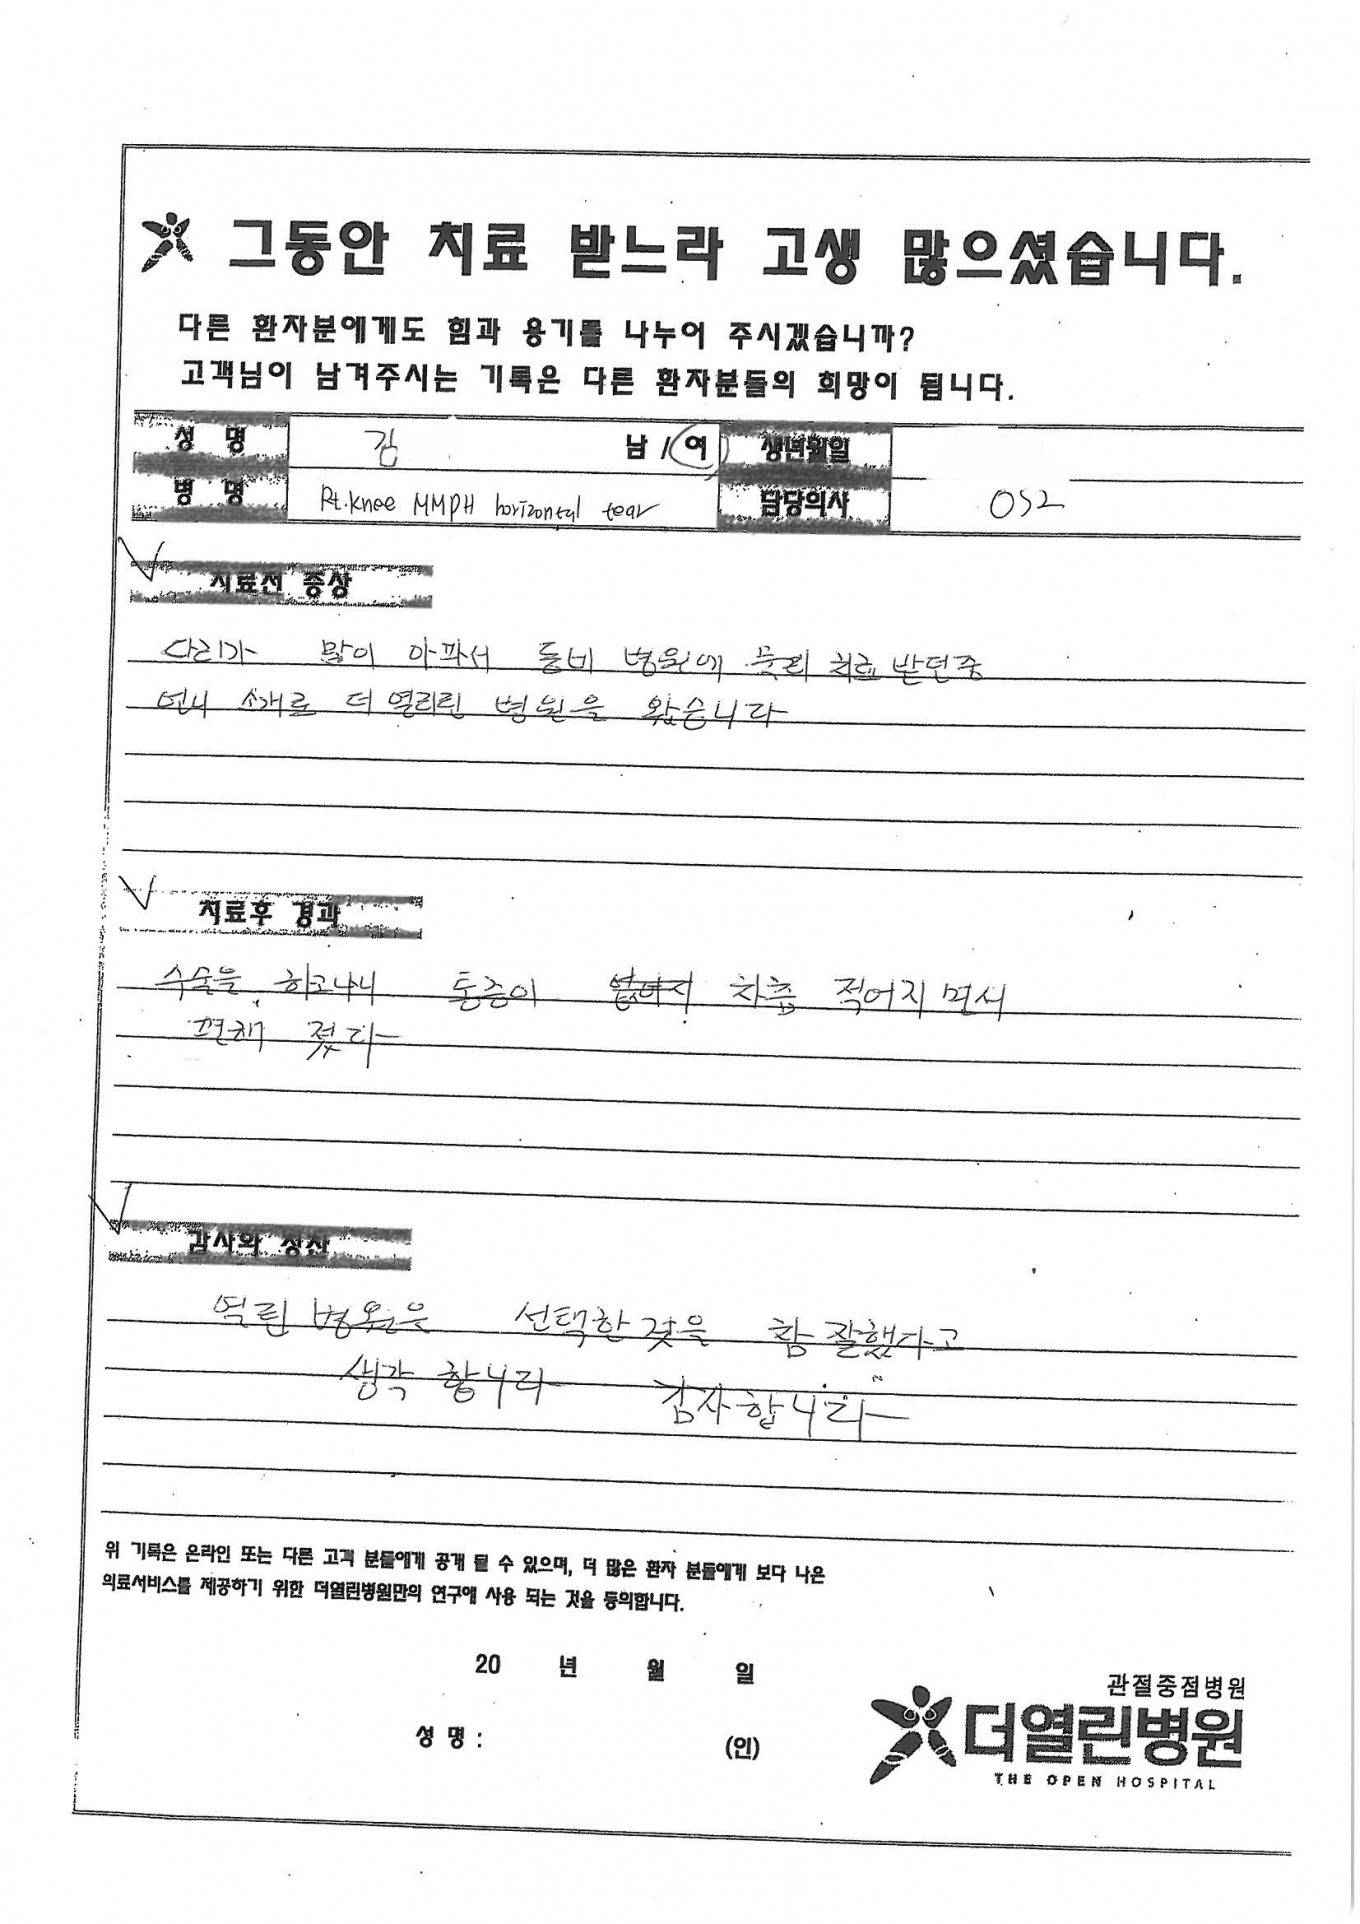 그동안 치료 받느라 고생 많으셨습니다.
다른 환자분에게도 힘과 용기를 나누어 주시겠습니까?
고객님이 남겨주시는 기록은 다른 환자분들의 희망이 됩니다.
성 명 김 남 / 여 생년월일
병 명 Rt. knee MMPH horizontal tear 담당의사 OS2
치료전 증상
다리가 많이 아파서 동비 병원에 물리 치료 받던중
언니 소개로 더 열리린 병원을 왔습니다
치료후 경과
수술을 하고나니 통증이 차츰 적어지면서
편해 졌다
감사와 칭찬
열린 병원은 선택한 것을 참 잘했다고
생각 합니다 감사합니다
위 기록은 온라인 또는 다른 고객 분들에게 공개 될 수 있으며, 더 많은 환자 분들에게 보다 나은
의료서비스를 제공하기 위한 더열린병원만의 연구에 사용 되는 것을 동의합니다.
20 년 월 일
성 명 : (인)
관절중점병원
더열린병원
THE OPEN HOSPITAL